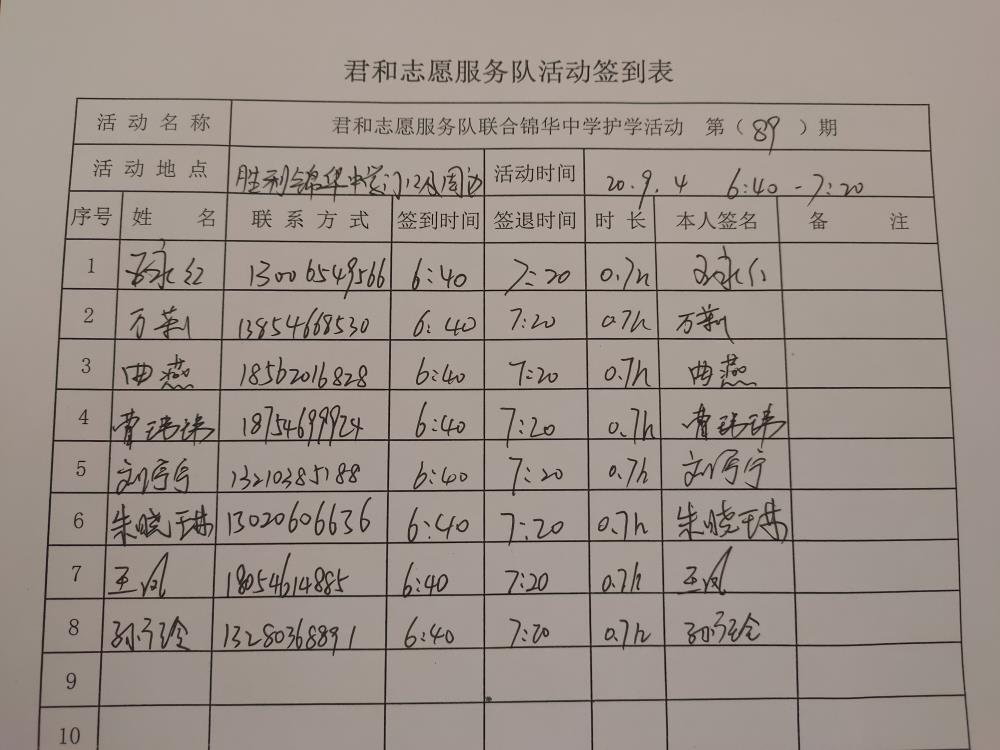 君和志愿服务队活动签到表
活动名称 君和志愿服务队联合锦华中学护学活动 第（89）期
活动地点 胜利锦华中学门口及周边 活动时间 20.9.4 6:40-7:20
序号 姓名 联系方式 签到时间 签退时间 时长 本人签名 备注
1 永红 13006549566 6:40 7:20 0.7h 永仁
2 万莉 13854668530 6:40 7:20 0.7h 万莉
3 曲燕 18562016828 6:40 7:20 0.7h 曲燕
4 曹玮玮 18754699924 6:40 7:20 0.7h 曹玮玮
5 刘宁宁 13210385188 6:40 7:20 0.7h 刘宁宁
6 朱晓琳 13020606636 6:40 7:20 0.7h 朱晓琳
7 王凤 18054614885 6:40 7:20 0.7h 王凤
8 孙 玲 13280368891 6:40 7:20 0.7h 孙 玲
9
10